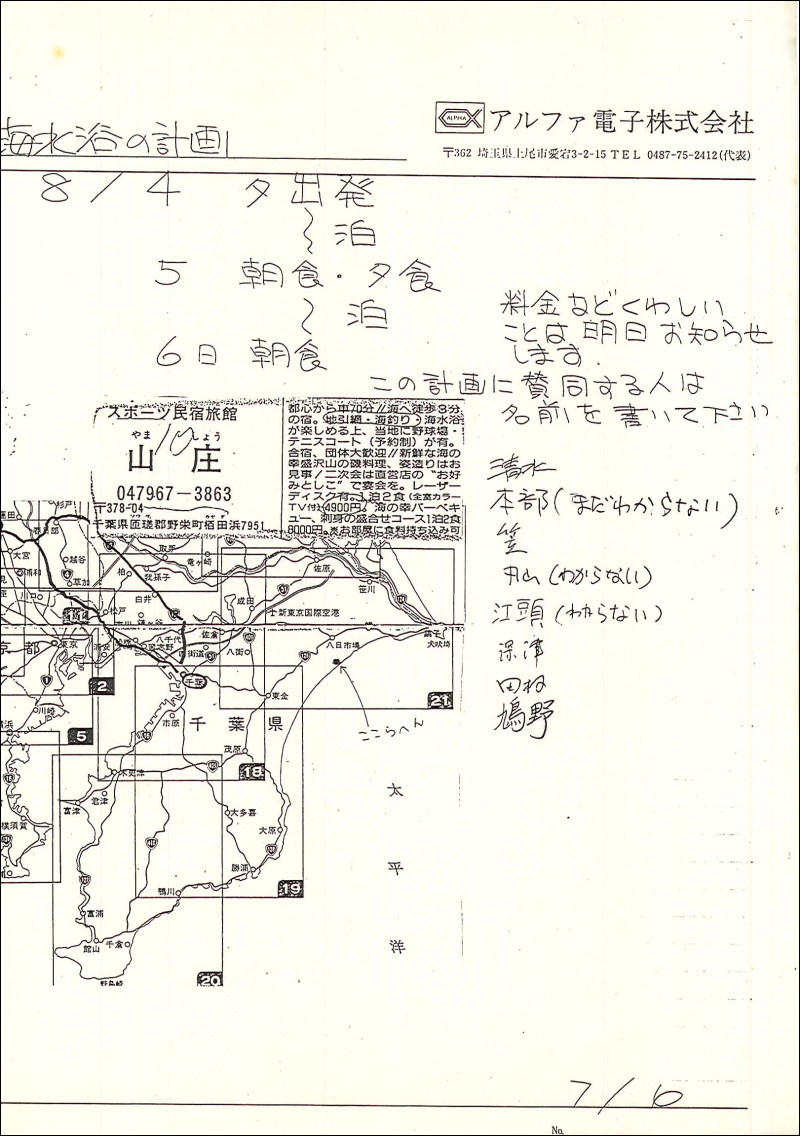 ALPHA
アルファ電子株式会社
〒362 埼玉県上尾市愛宕3-2-15 TEL 0487-75-2412(代表)
海水浴の計画
8/4 夕出発
〜泊
5 朝食・夕食
〜泊
6日 朝食
料金などくわしい
ことは明日お知らせ
します.
この計画に賛同する人は
名前を書いて下さい
スポーツ民宿旅館
やま しょう
山 庄
047967-3863
〒378-04
千葉県匝瑳郡野栄町栢田浜7951
都心から車70分//海へ徒歩3分
の宿。地引網・海釣り・海水浴
が楽しめる上、当地に野球場・
テニスコート(予約制)が有。
合宿、団体大歓迎//新鮮な海の
幸盛沢山の磯料理、姿造りはお
見事/二次会は直営店の"お好
みとしこ"で宴会を。レーザー
ディスク有。1泊2食(全室カラー
TV付)4900円。海の幸バーベキ
ュー、刺身の盛合せコース1泊2食
8000円。※お部屋に食料持ち込み可
清水
本部(まだわからない)
笠
丹山(わからない)
江頭(わからない)
保津
田村
鳩野
杉戸
春日部
大宮
越谷
浦和
草加
川口
取手
竜ヶ崎
柏
我孫子
佐原
笹川
白井
成田
松戸
新東京国際空港
佐倉
八千代
習志野
四街道
八街
八日市場
銚子
犬吠埼
東京
浦安
千葉
2
21
東金
川崎
5
市原
千葉県
ここらへん
茂原
18
木更津
君津
富津
大多喜
横須賀
大原
勝浦
鴨川
19
富浦
館山
千倉
野島崎
20
太
平
洋
7/6
No.